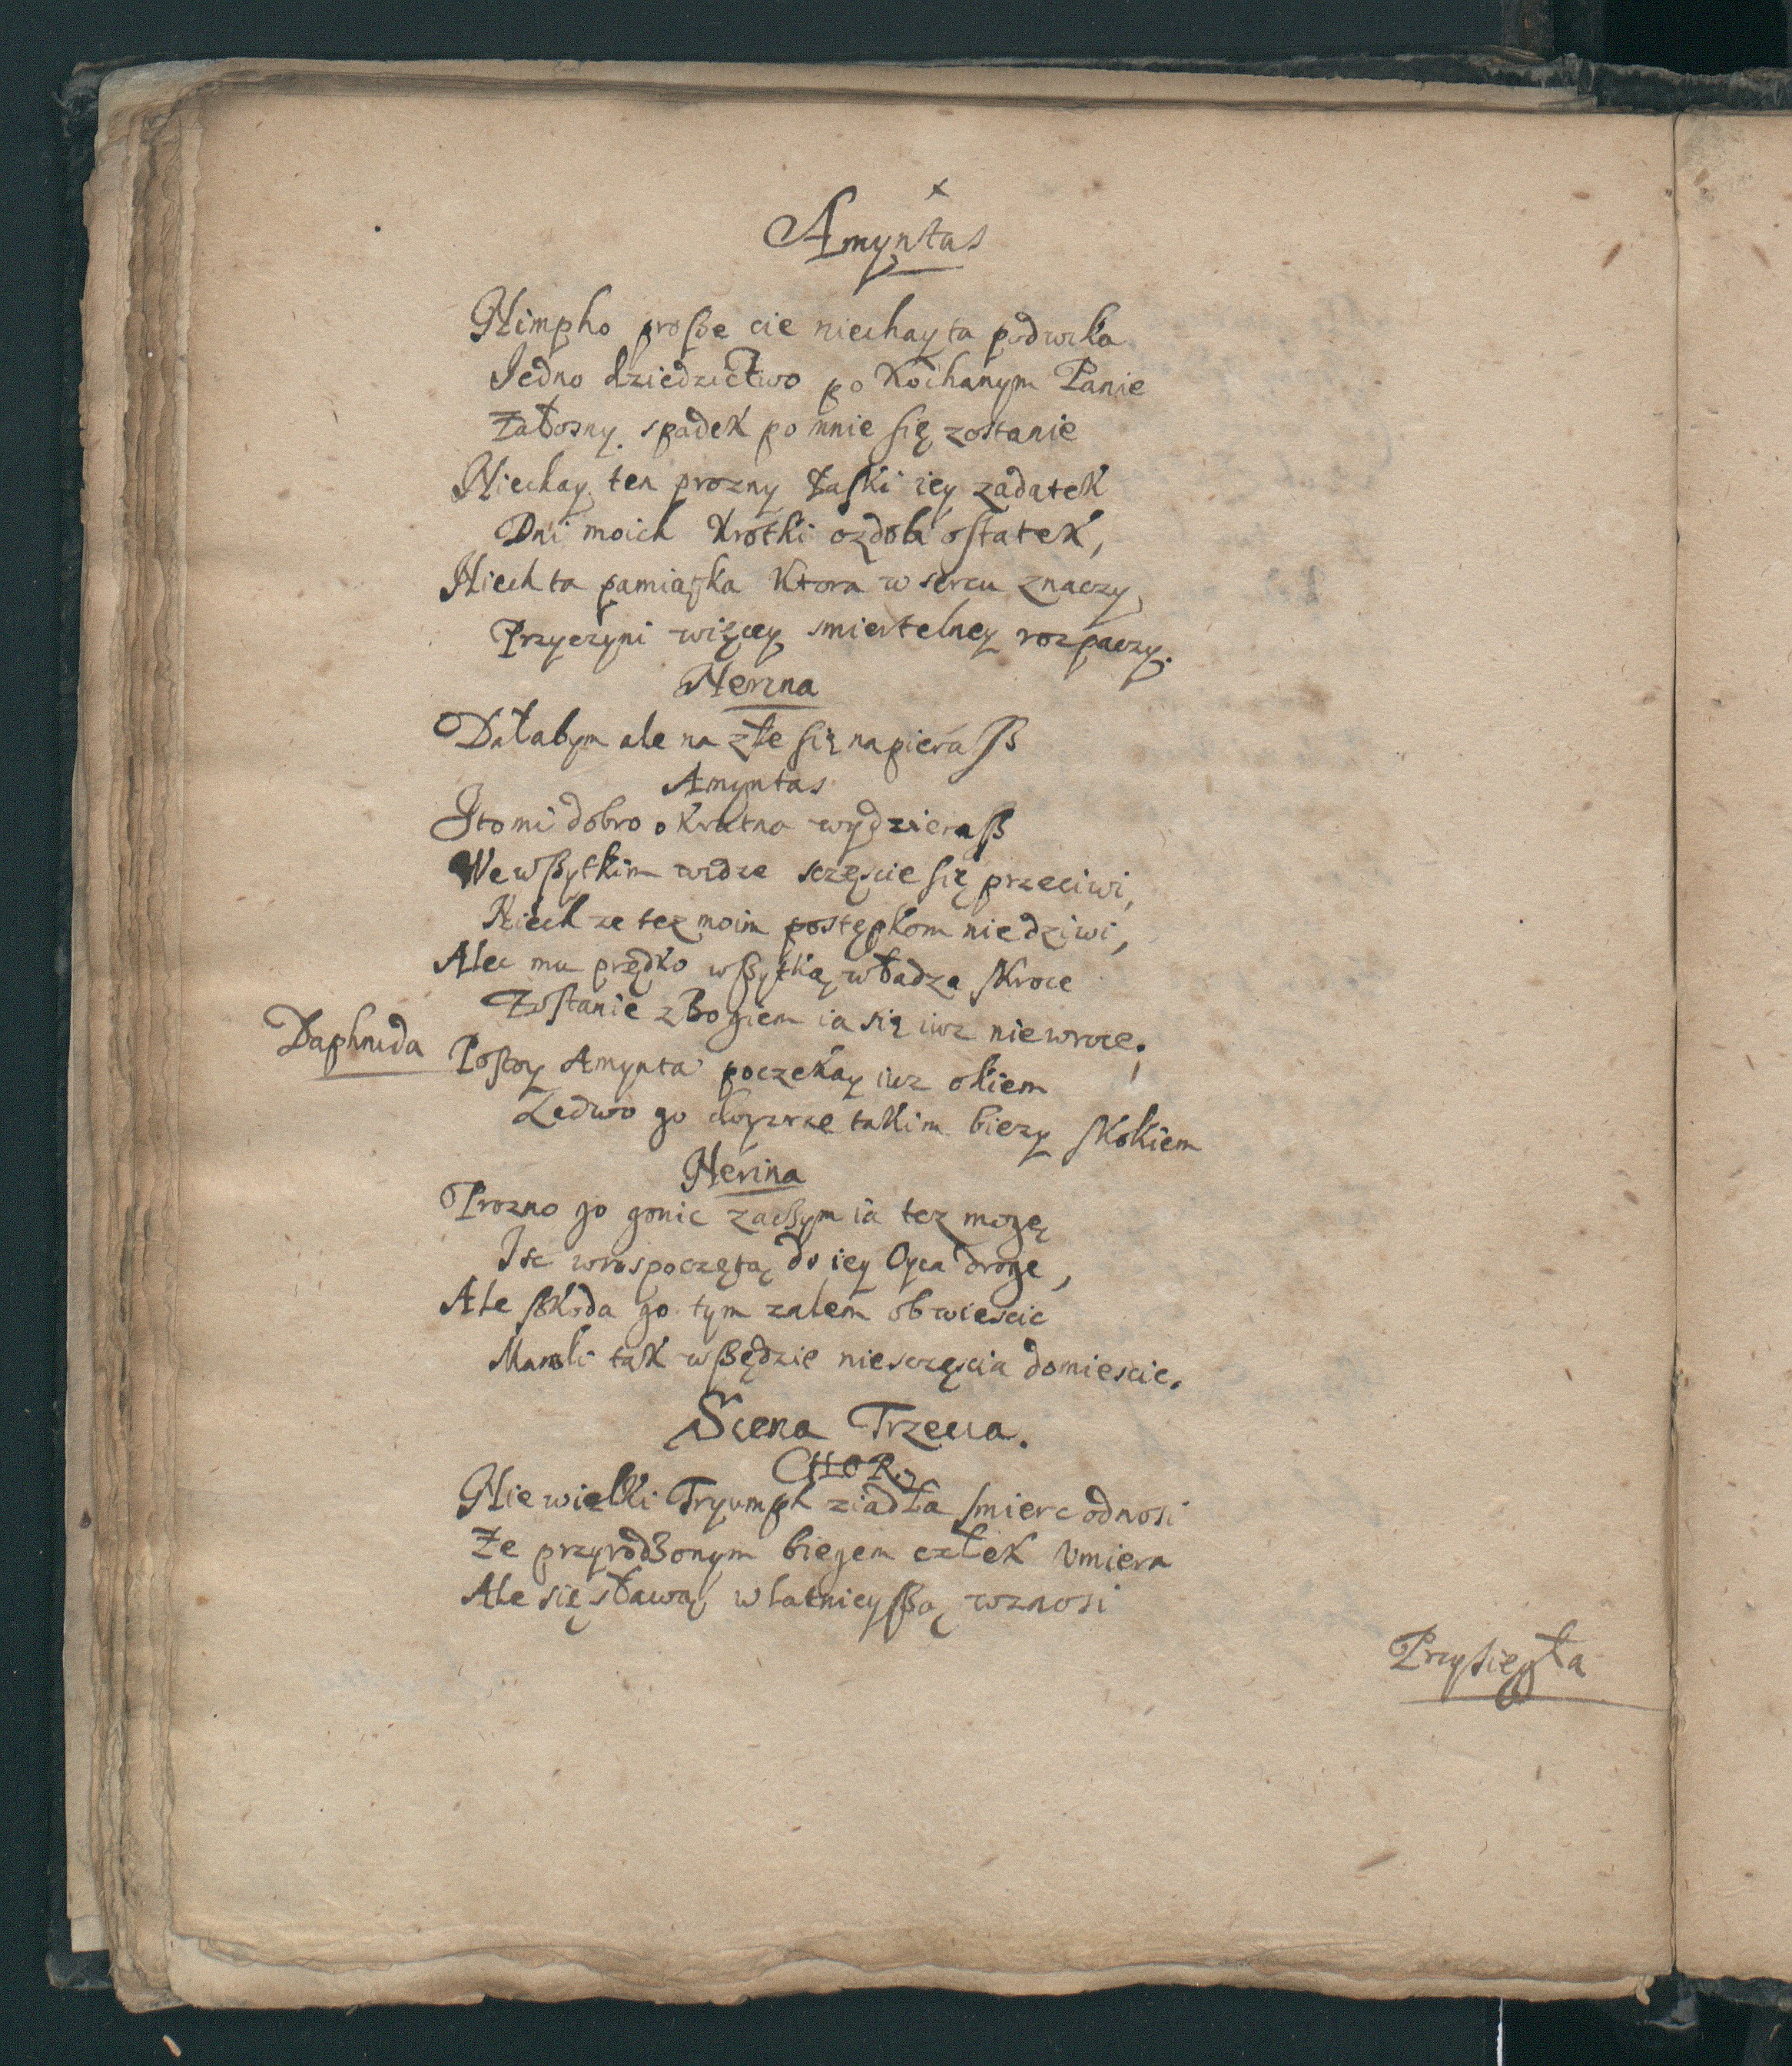 x
Amyntas
Nimpho proſße cie niechay ta podwika
Jedno dziedzictwo po Kochanym Panie
Załosny spadek po mnie się zostanie
Niechay ten prozny łaſki iey zadatek
Dni moich Krotki ozdobi oſtatek,
Niech ta pamiąſka Ktora w sercu znaczy,
Przyczyni więcey smiertelney rozpaczy.
Nerina
Dałabym ale na złe się napieraſß
Amyntas
I to mi dobro okrutna wydzieraſß
We wſßytkim widze sczęscie się przeciwi,
Niech ze tez moim postępkom nie dziwi,
Alec mu prędko wſßytką władza ſkroce
Zoſtanie z Bogiem ia się iuz niewroce.
Daphnida
Poſtoy Amynta poczekay iuz okiem
Ledwo go doyzrze takim biezy ſkokiem
Nerina
Prozno go gonic zaczym ia tez mogę
Isc w rospoczętą do iey Oyca droge,
Ale ſßkoda go tym zalem obwiescic
Mamli tak wſßędzie niesczęscia domiescic.
Scena Trzecia.
CHOR.
Niewielki Tryumph ziadła ſmierc odnosi
Ze przyrodzonym biegem człek Vmiera
Ale się sławą w latnieyſßą wznosi
Przyſięgła